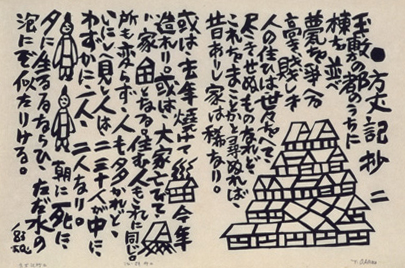 ●方丈記抄 二
玉敷の都のうちに
棟を並べ
甍を争へ
高き賤しき
人の住ひは世々をへて
尽きせぬものなれど、
これをまことかと尋ぬれば
昔ありし家は稀なり。
或は去年焼けて 今年
造れり。或は、大家亡びて
小家となる。住む人もこれに同じ。
所も変らず、人も多かれど、
いにしへ見し人は、二三十人が中に
わずかに一人二人なり。 朝に死に
夕に生るるならひ、ただ水の
泡にぞ似たりける。